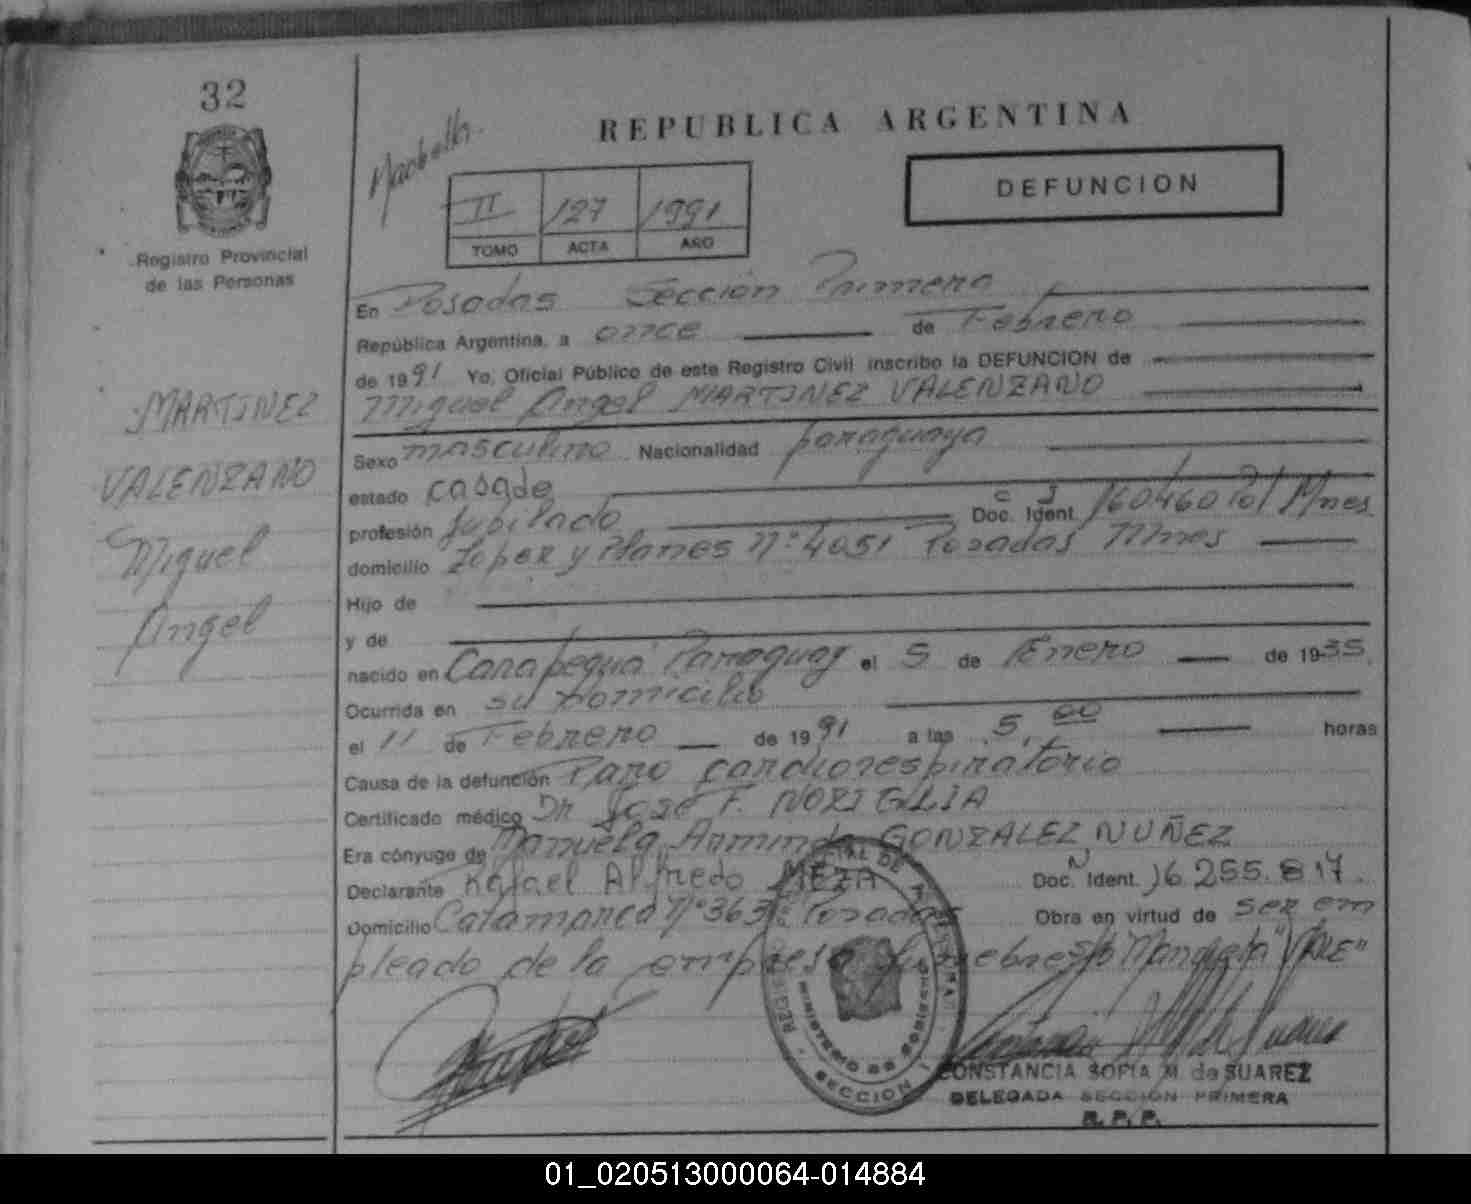 32
Registro Provincial
de las Personas
MARTINEZ
VALENZANO
Miguel
Angel
REPUBLICA ARGENTINA
II 127 1991
TOMO ACTA AÑO
DEFUNCION
En Posadas Sección Primera
República Argentina, a once de Febrero
de 1991 Yo, Oficial Público de este Registro Civil inscribo la DEFUNCION de
Miguel Angel MARTINEZ VALENZANO
Sexo masculino Nacionalidad paraguaya
estado casado
profesión Jubilado Doc. Ident. C I 160460 Pol Mnes
domicilio Lopez y Planes Nº 4051 Posadas Mnes
Hijo de
y de
nacido en Carapeguá Paraguay el 5 de Enero de 1935
Ocurrida en su domicilio
el 11 de Febrero de 1991 a las 5,00 horas
Causa de la defunción Paro cardiorespiratorio
Certificado médico Dr José F. NORIGLIA
Era cónyuge de Manuela Arminda GONZALEZ NUÑEZ
Declarante Rafael Alfredo MEZA Doc. Ident. N 16.255.817.
Domicilio Catamarca Nº 363 Posadas Obra en virtud de ser em
pleado de la empresa
MINISTERIO DE GOBIERNO
SECCION
CONSTANCIA SOFIA M. de SUAREZ
DELEGADA SECCION PRIMERA
R. P. P.
01_020513000064-014884